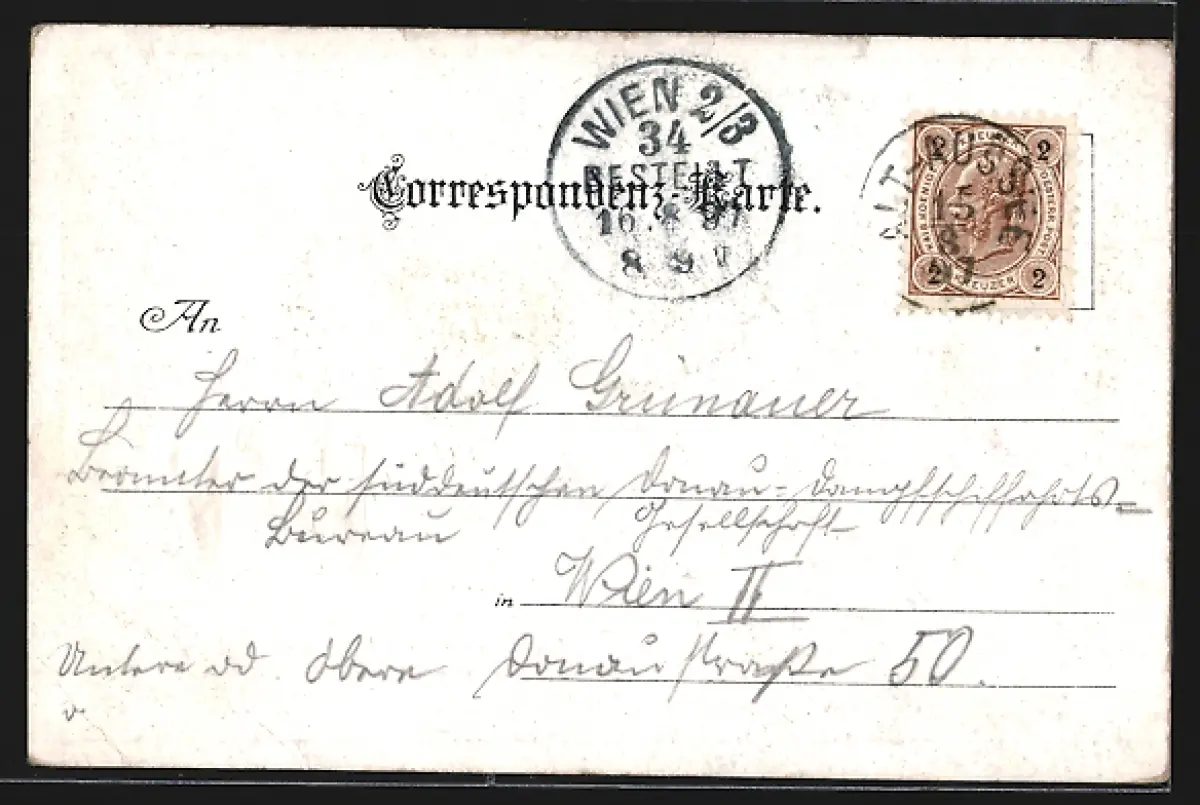 WIEN 2/3
34
BESTELLT
16. 8 97
8 9 V
Correspondenz-Karte.
ALT-AUSSEE
15
8
97
2 KREUZER 2
KAIS. KOENIGL. OESTERR. POST
2 KREUZER 2
An
Herrn Adolf Grünauer
Beamter der süddeutschen Donau-Dampfschiffahrts-
Bureau Gesellschaft
in Wien II
Untere od. Obere Donaustraße 50.